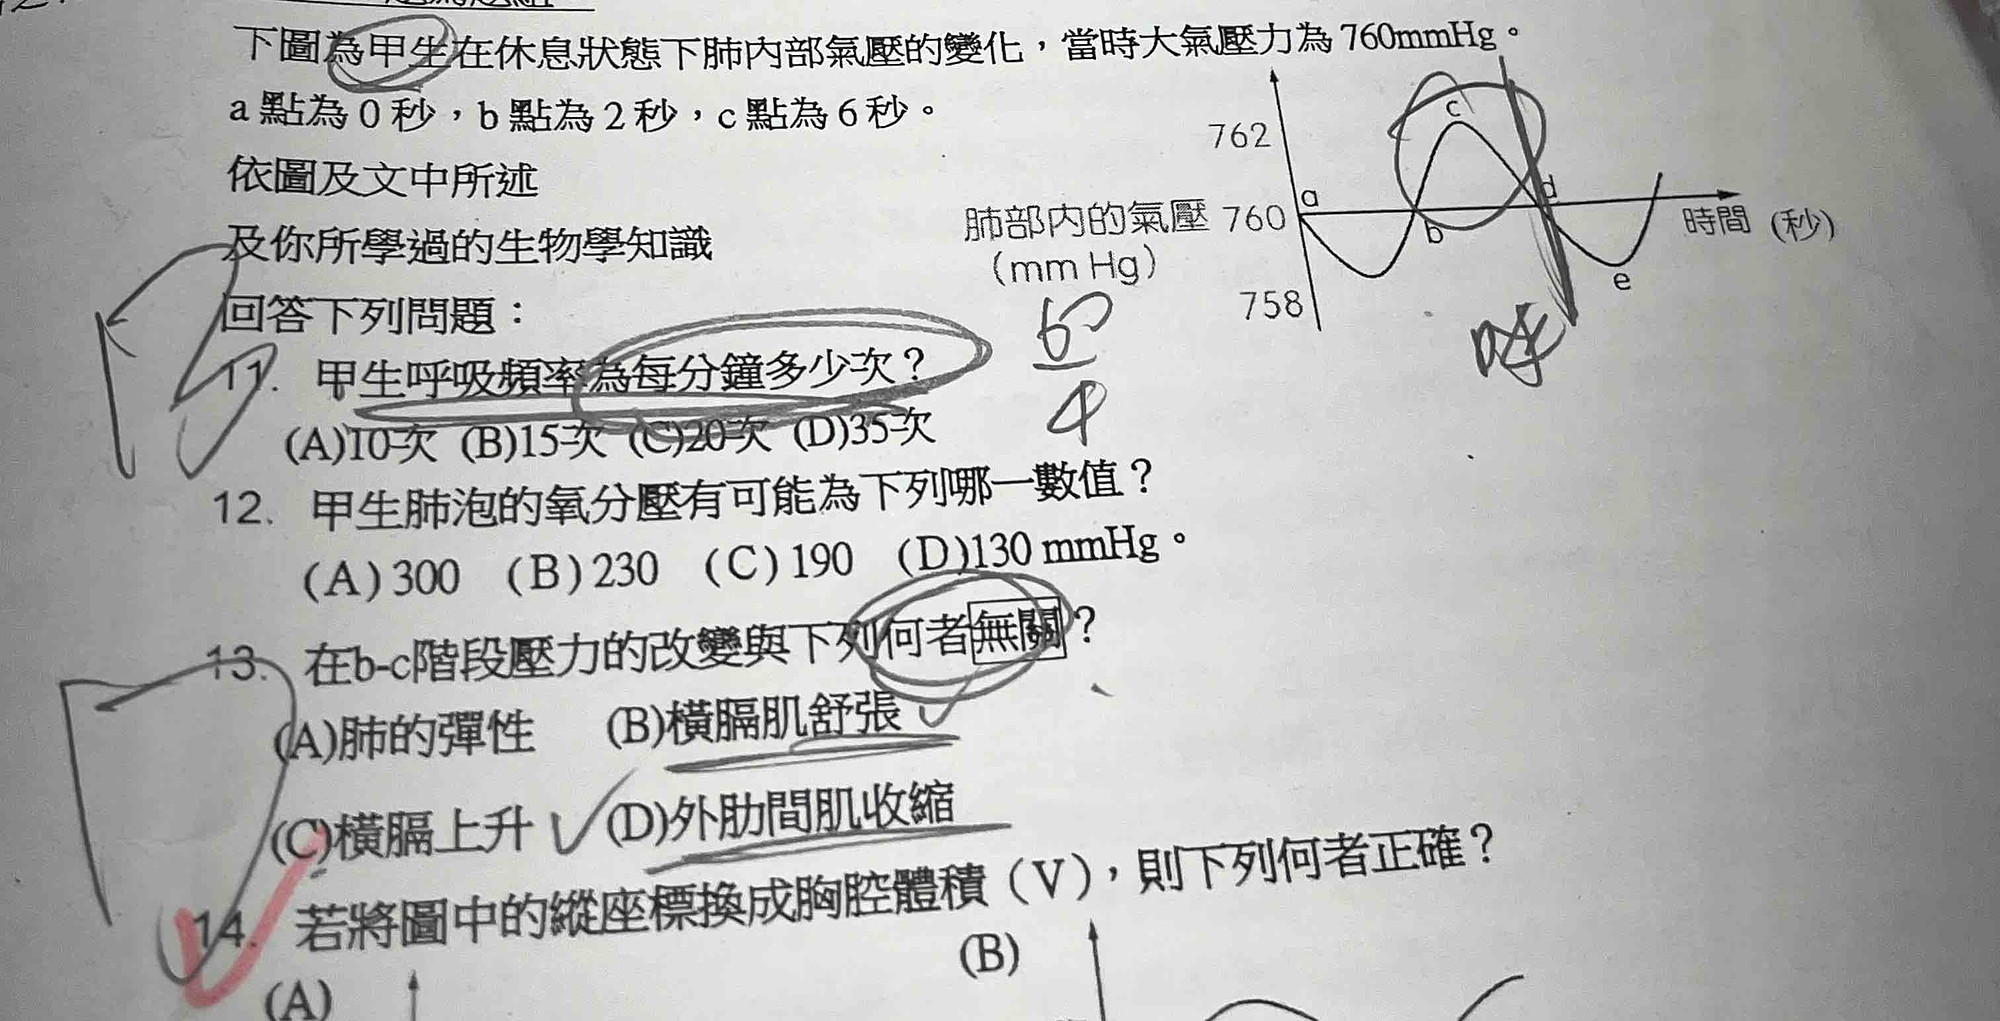 下圖為甲生在休息狀態下肺內部氣壓的變化，當時大氣壓力為760mmHg。
a點為0秒，b點為2秒，c點為6秒。
依圖及文中所述
及你所學過的生物學知識
回答下列問題：
762
肺部內的氣壓 760
(mm Hg)
758
a
b
c
d
e
時間 (秒)
呼
60
4
11. 甲生呼吸頻率為每分鐘多少次？
(A)10次 (B)15次 (C)20次 (D)35次
12. 甲生肺泡的氧分壓有可能為下列哪一數值？
(A)300 (B)230 (C)190 (D)130 mmHg。
13. 在b-c階段壓力的改變與下列何者無關？
(A)肺的彈性 (B)橫膈肌舒張
(C)橫膈上升 (D)外肋間肌收縮
14. 若將圖中的縱座標換成胸腔體積（V），則下列何者正確？
(A) (B)